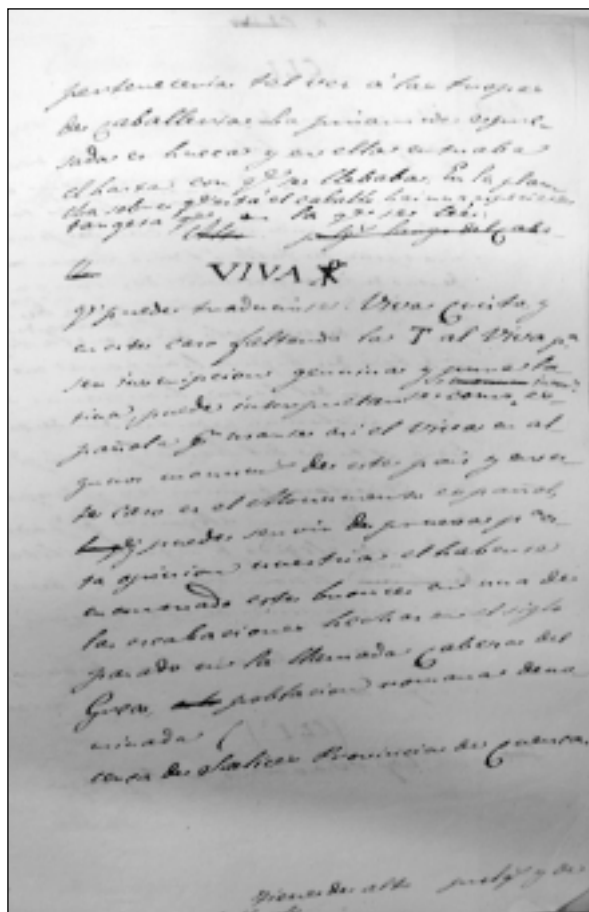 perteneceria tal vez a las tropas
de caballeria. La piramide espre-
sada es hueca y en ella entraba
el hasta con qe se llebaba. En la plan
cha sobre qe está el caballo hai una
en la qe se lee:
VIVA
qe puede traducirse: Viva Cristo, y
en este caso faltando la T al Viva pa
ser inscripcion genuina y
tina, puede interpretarse como es-
pañola pr usarse asi el Vivas en al
gunos monumtos de este pais y en es-
te caso es el Monumento español,
puede servir de prueba pa es-
ta opinion nuestra el haberse
encontrado este bronce en una de
las escabaciones hechas en el siglo
pasado en la llamada Cabeza del
Griego, poblacion romana deno
minada (
cerca de Saelices Provincia de Cuenca.
Tiene de alto pulgs y de